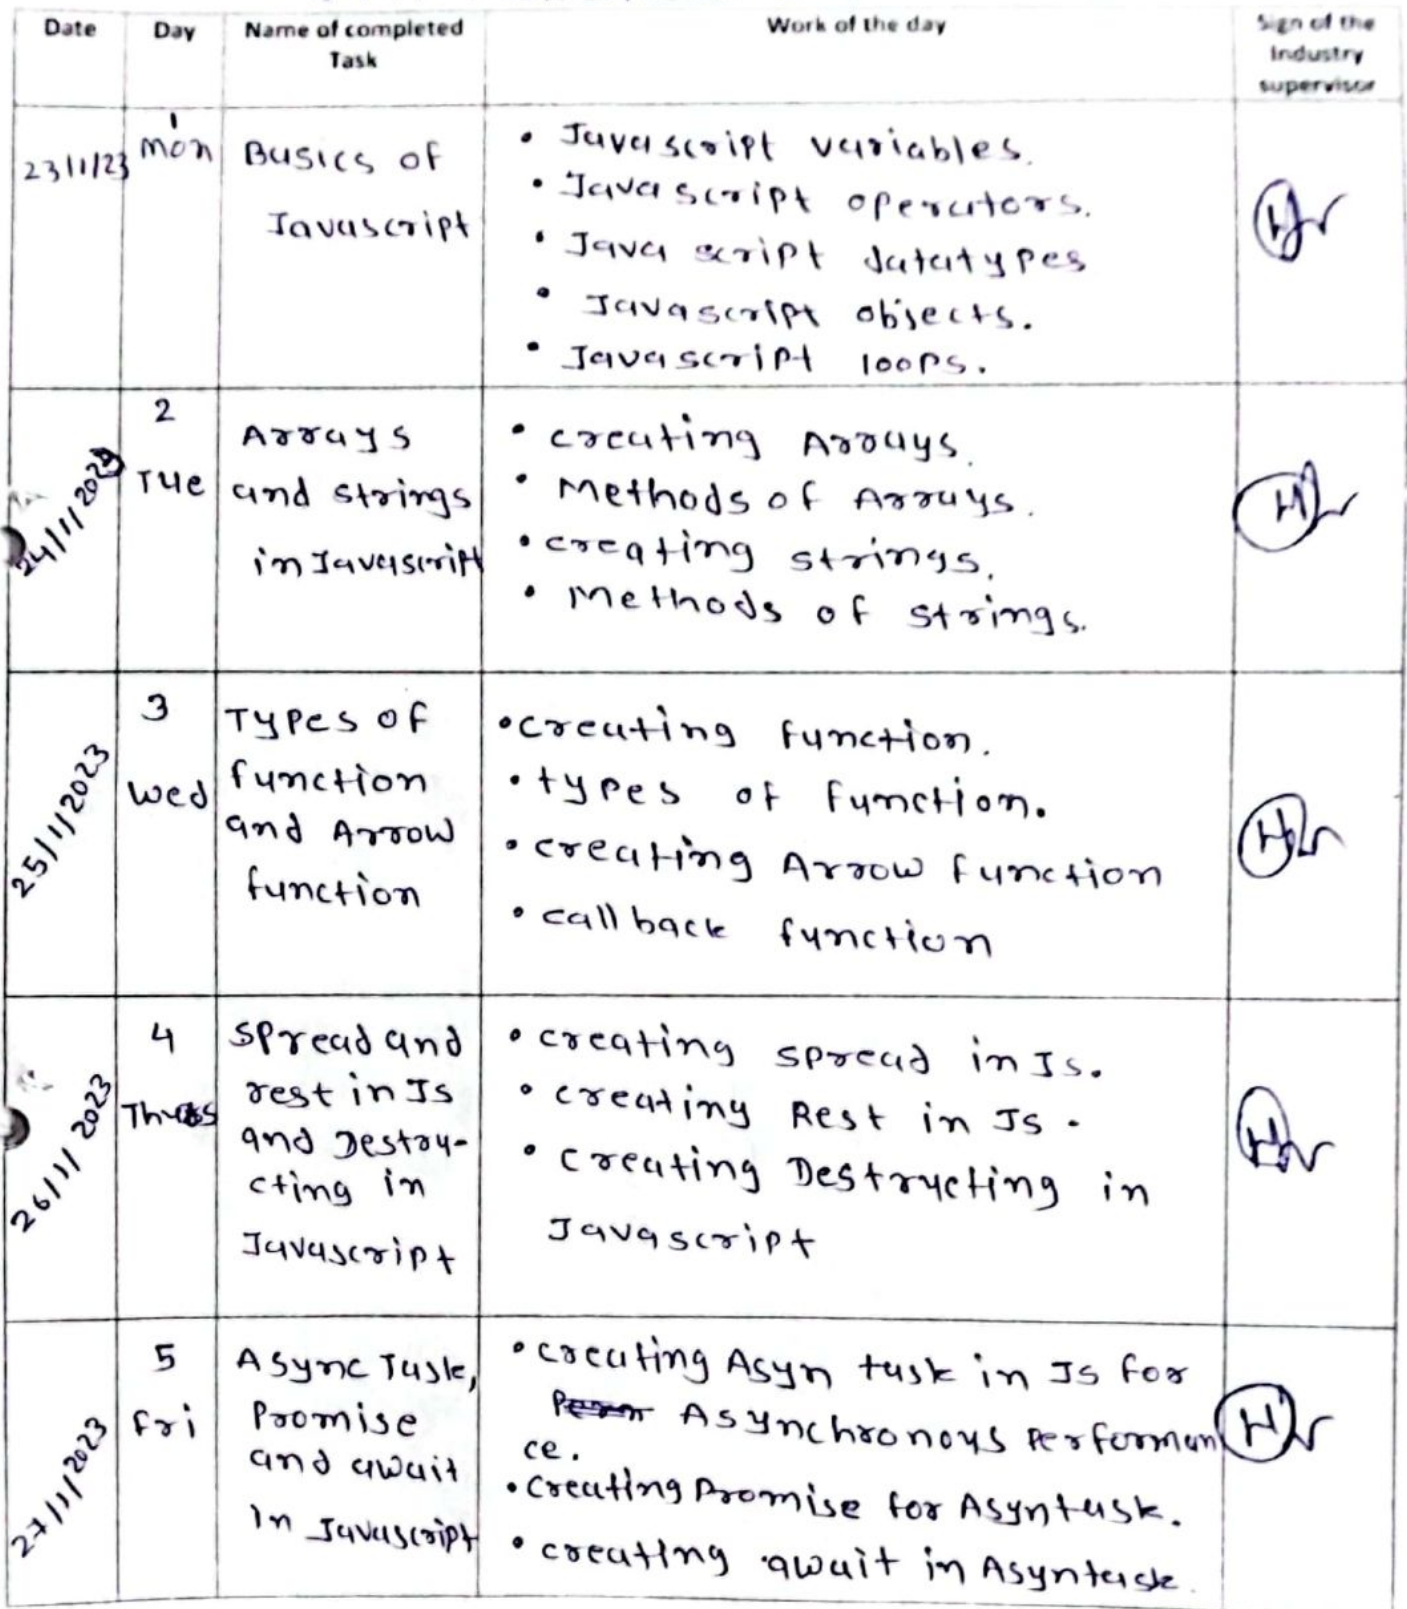 Date Day Name of completed Task Work of the day Sign of the Industry supervisor
23/1/23
1
Mon
Basics of
Javascript
• Javascript variables.
• Javascript operators.
• Java script datatypes
• Javascript objects.
• Javascript loops.
24/1/2023
2
Tue
Arrays
and strings
in Javascript
• creating Arrays.
• Methods of Arrays.
• creating strings.
• Methods of strings.
25/1/2023
3
Wed
Types of
function
and Arrow
function
• creating function.
• types of function.
• creating Arrow function
• call back function
26/1/2023
4
Thurs
Spread and
rest in Js
and Destru-
cting in
Javascript
• creating spread in Js.
• creating Rest in Js.
• creating Destructing in
Javascript
27/1/2023
5
Fri
Async Task,
Promise
and await
in Javascript
• creating Asyn task in Js for
Asynchronous Performan
ce.
• Creating Promise for Asyntask.
• creating await in Asyntask.